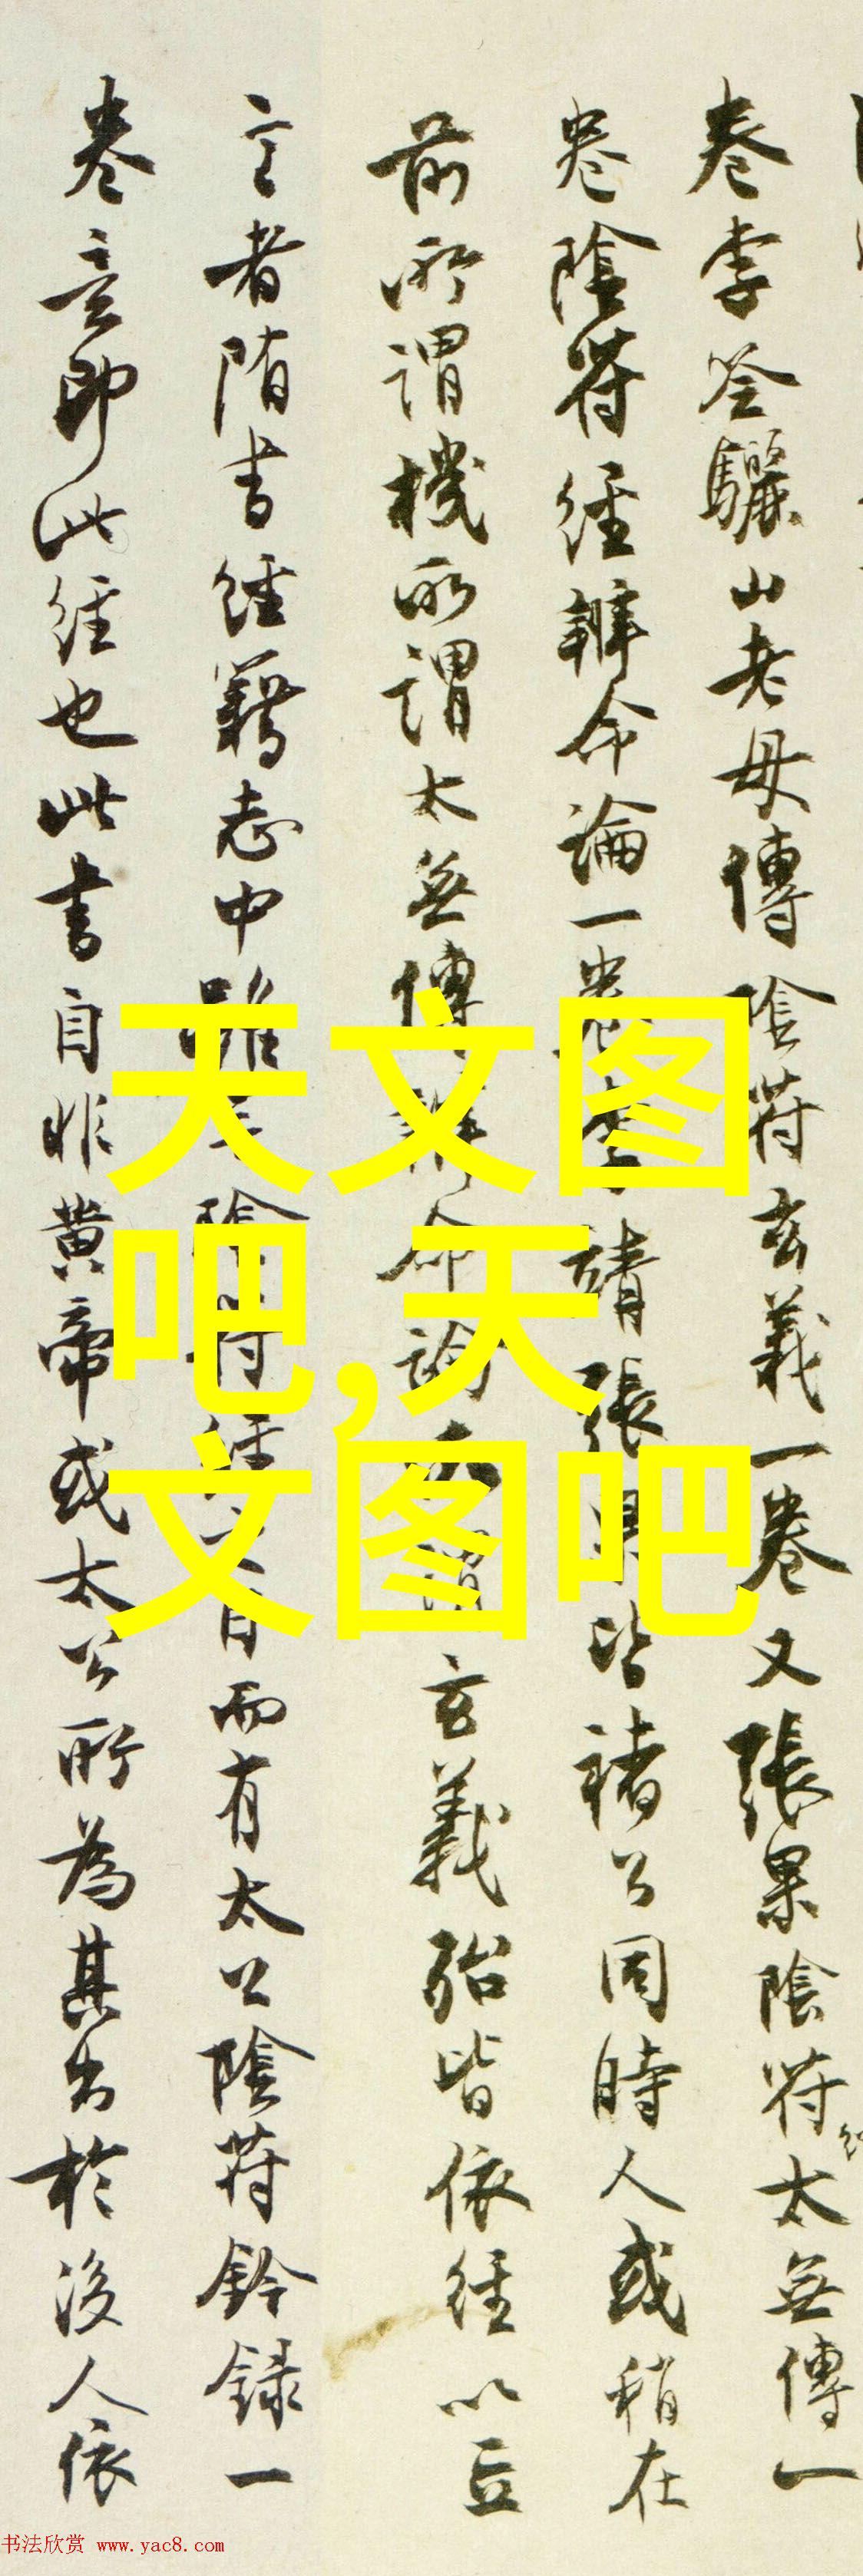 卷李筌驪山老母傳陰符玄義一卷又張果陰符太無傳一
卷陰符經辨命論一卷李靖張果皆褚公同時人或稍在
前所謂機所謂太無傳辨命論所謂玄義殆皆依經以立
言者隋書經籍志中雖無陰符經之目而有太公陰符鈐録一
卷意即此經也此書自非黄帝或太公所為其出於後人依
天文图
吧,天
文图吧
书法欣赏 www.yac8.com